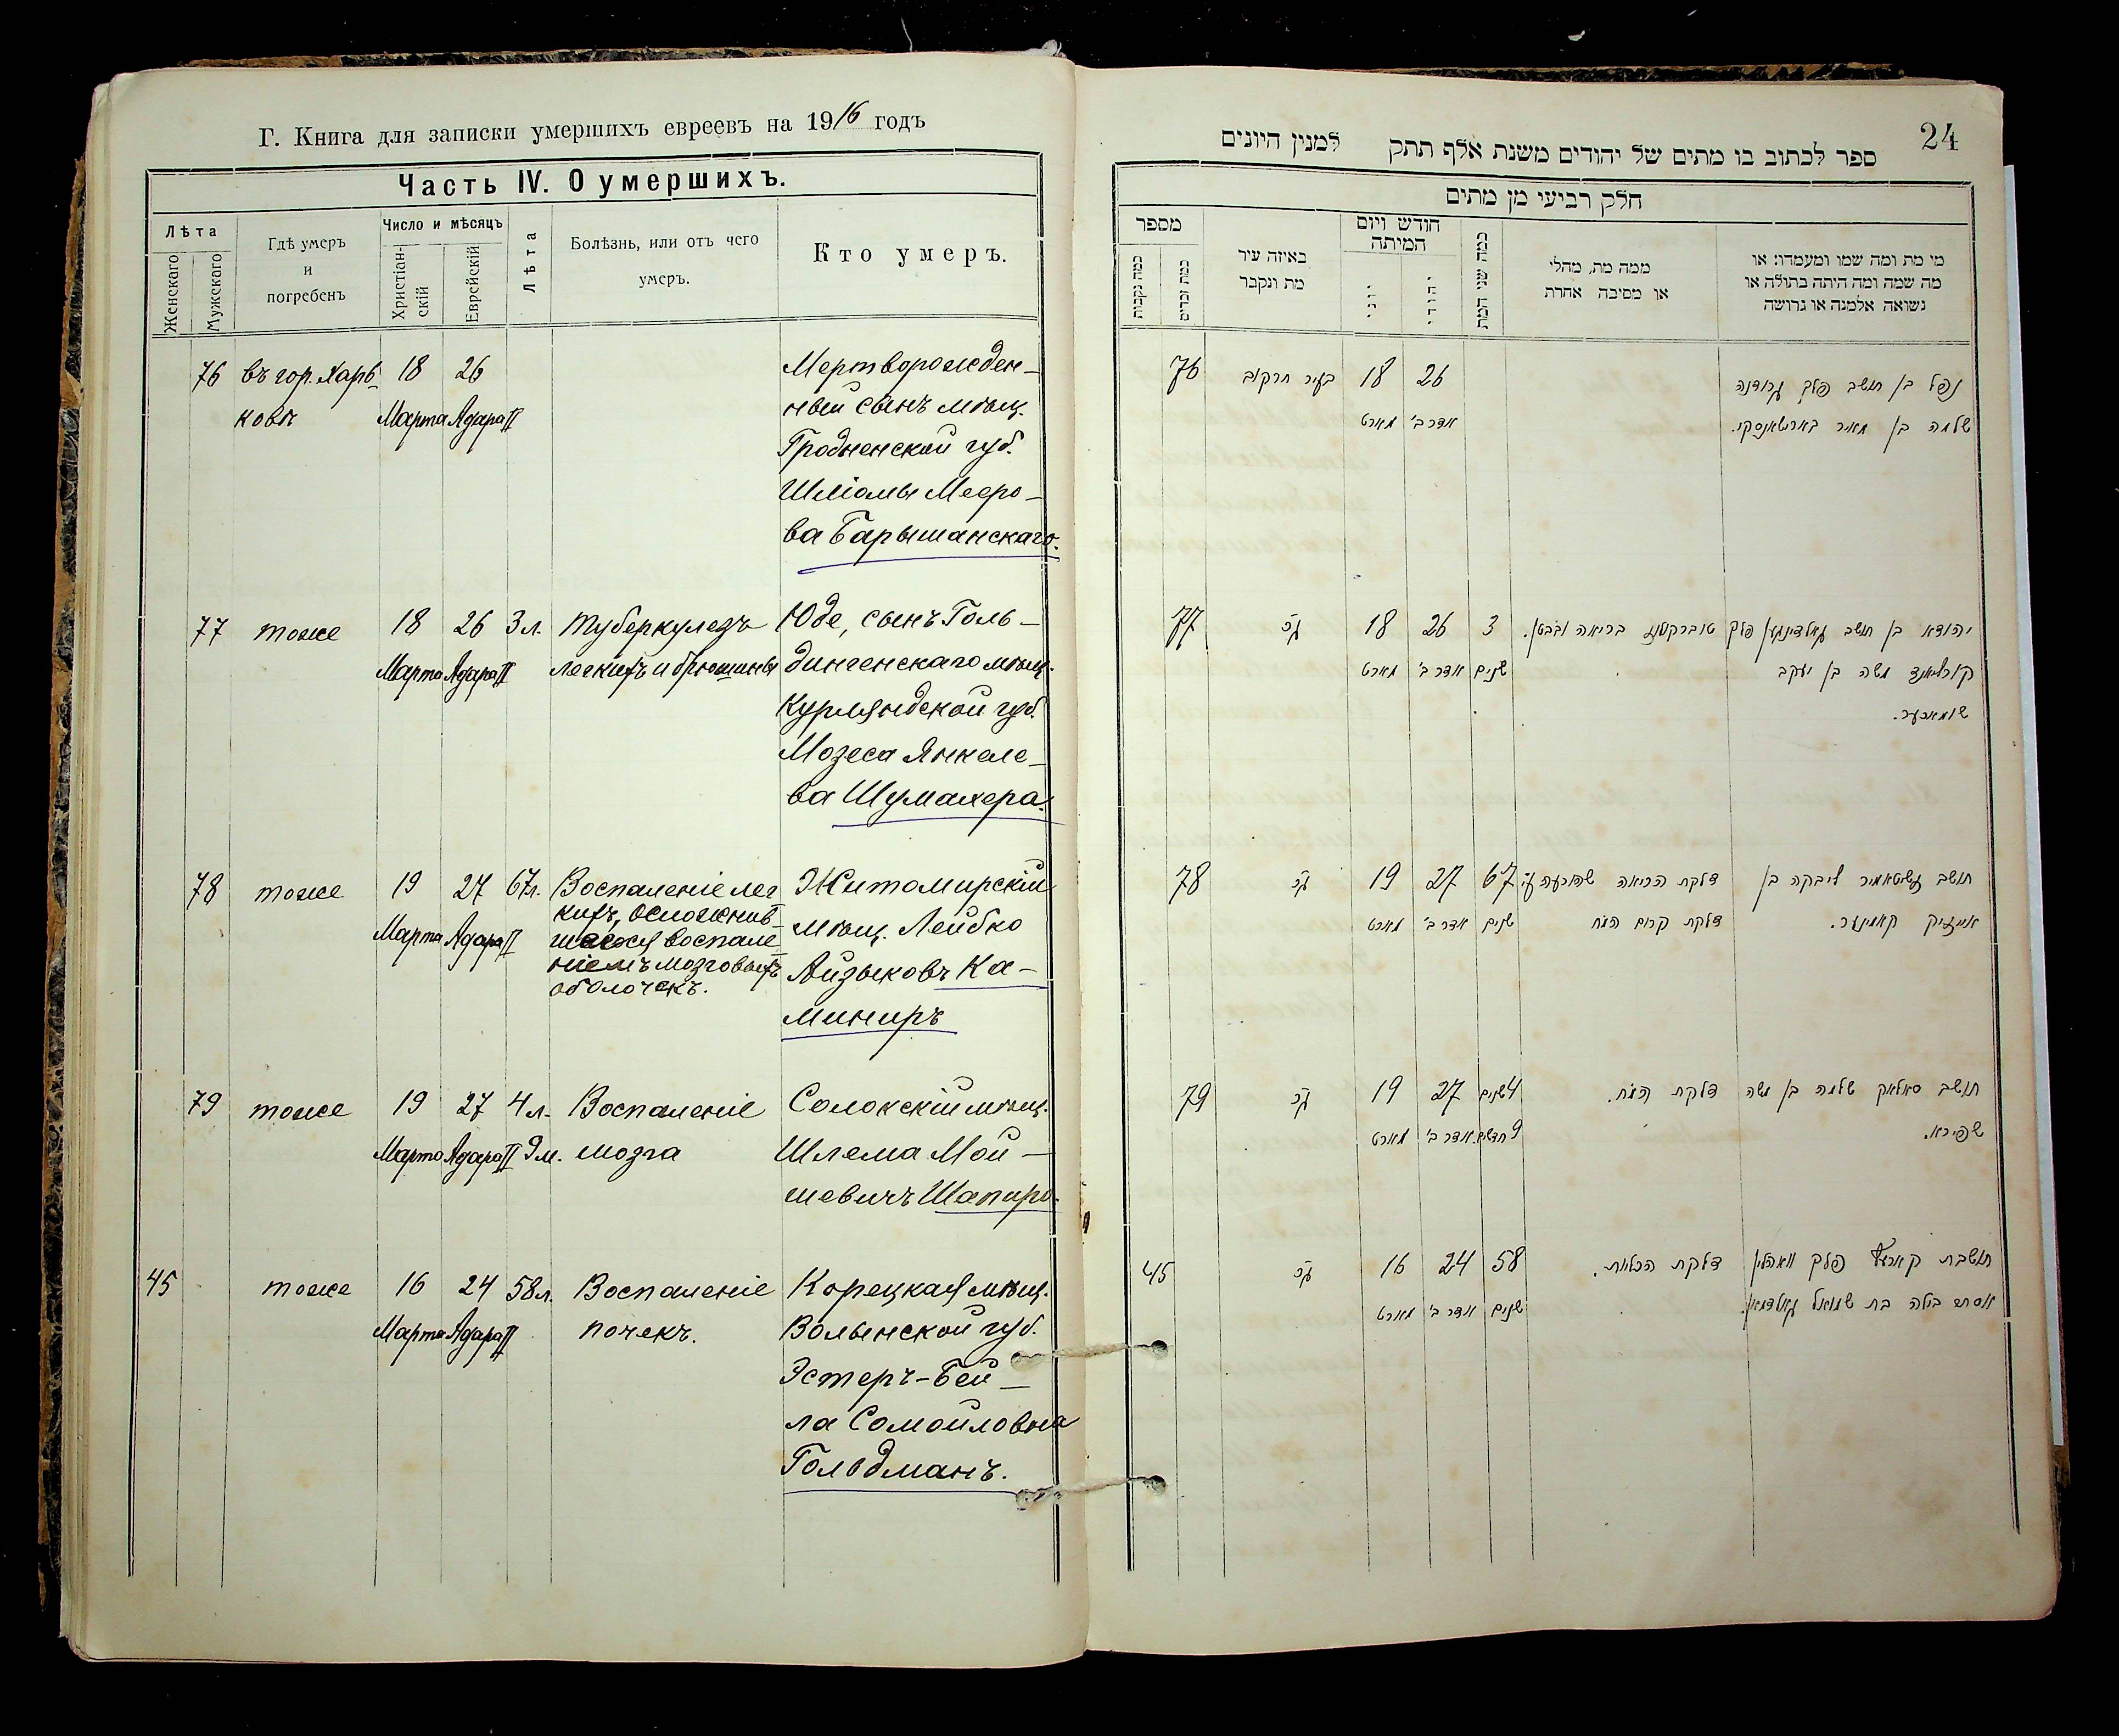 Г. Книга для записки умершихъ евреевъ на 1916 годъ
Часть IV. О умершихъ.
Лѣта
Женскаго
Мужскаго
Гдѣ умеръ
и
погребенъ
Число и мѣсяцъ
Христіан-
скій
Еврейскій
Лѣта
Болѣзнь, или отъ чего
умеръ.
Кто умеръ.
76 въ гор. Харь- 18 26 Мертворожден-
ковѣ Марта Адара II ный сынъ мѣщ.
Гродненской губ.
Шліомы Мееро-
ва Барышанскаго.
77 тоже 18 26 3 л. Туберкулезъ Юде, сынъ Голь-
Марта Адара II легкихъ и брюшины дингенскаго мѣщ.
Курляндской губ.
Мозеса Янкеле-
ва Шумахера.
78 тоже 19 27 67 л. Воспаленіе лег- Житомирскій
Марта Адара II кихъ, осложнив- мѣщ. Лейбко
шееся воспале-
ніемъ мозговыхъ Айзыковъ Ка-
оболочекъ.
миниръ
79 тоже 19 27 4 л. Воспаленіе Солокскій мѣщ.
Марта Адара II 9 м. мозга Шлема Мой-
шевичъ Шапиро.
45 тоже 16 24 58 л. Воспаленіе Корецкая мѣщ.
Марта Адара II почекъ. Волынской губ.
Эстеръ-Бей-
ла Сомойловна
Голодманъ.
24
ספר לכתוב בו מתים של יהודים משנת אלף תתק למנין היונים
חלק רביעי מן מתים
מספר
כמה נקבות
כמה זכרים
באיזה עיר
מת ונקבר
חודש ויום
המיתה
יוני
יהודי
כמה שני המת
ממה מת, מחלי
או מסיבה אחרת
מי מת ומה שמו ומעמדו: או
מה שמה ומה היתה בתולה או
נשואה אלמנה או גרושה
76 בעיר חרקוב 18 26 נפל בן תושב פלך גרודנה
מארט אדר ב' שלמה בן מאיר באריטאנסקי.
77 18 26 3 יהודא בן תושב גאלדינגען פלך
מארט אדר ב' שנים קורליאנד משה בן יעקב
שומאכער.
78 19 27 67 דלקת הריאה תושב זשיטאמיר ליבקה בן
מארט אדר ב' שנים דלקת קרום המח אייזיק קאמינער.
79 19 27 4 שנים דלקת המח. תושב סאלאק שלמה בן משה
מארט אדר ב' 9 חדשים שפירא.
45 16 24 58 דלקת הכליות. תושבת קארעץ פלך וואהלין
מארט אדר ב' שנים אסתר ביילה בת שמואל גאלדמאן.